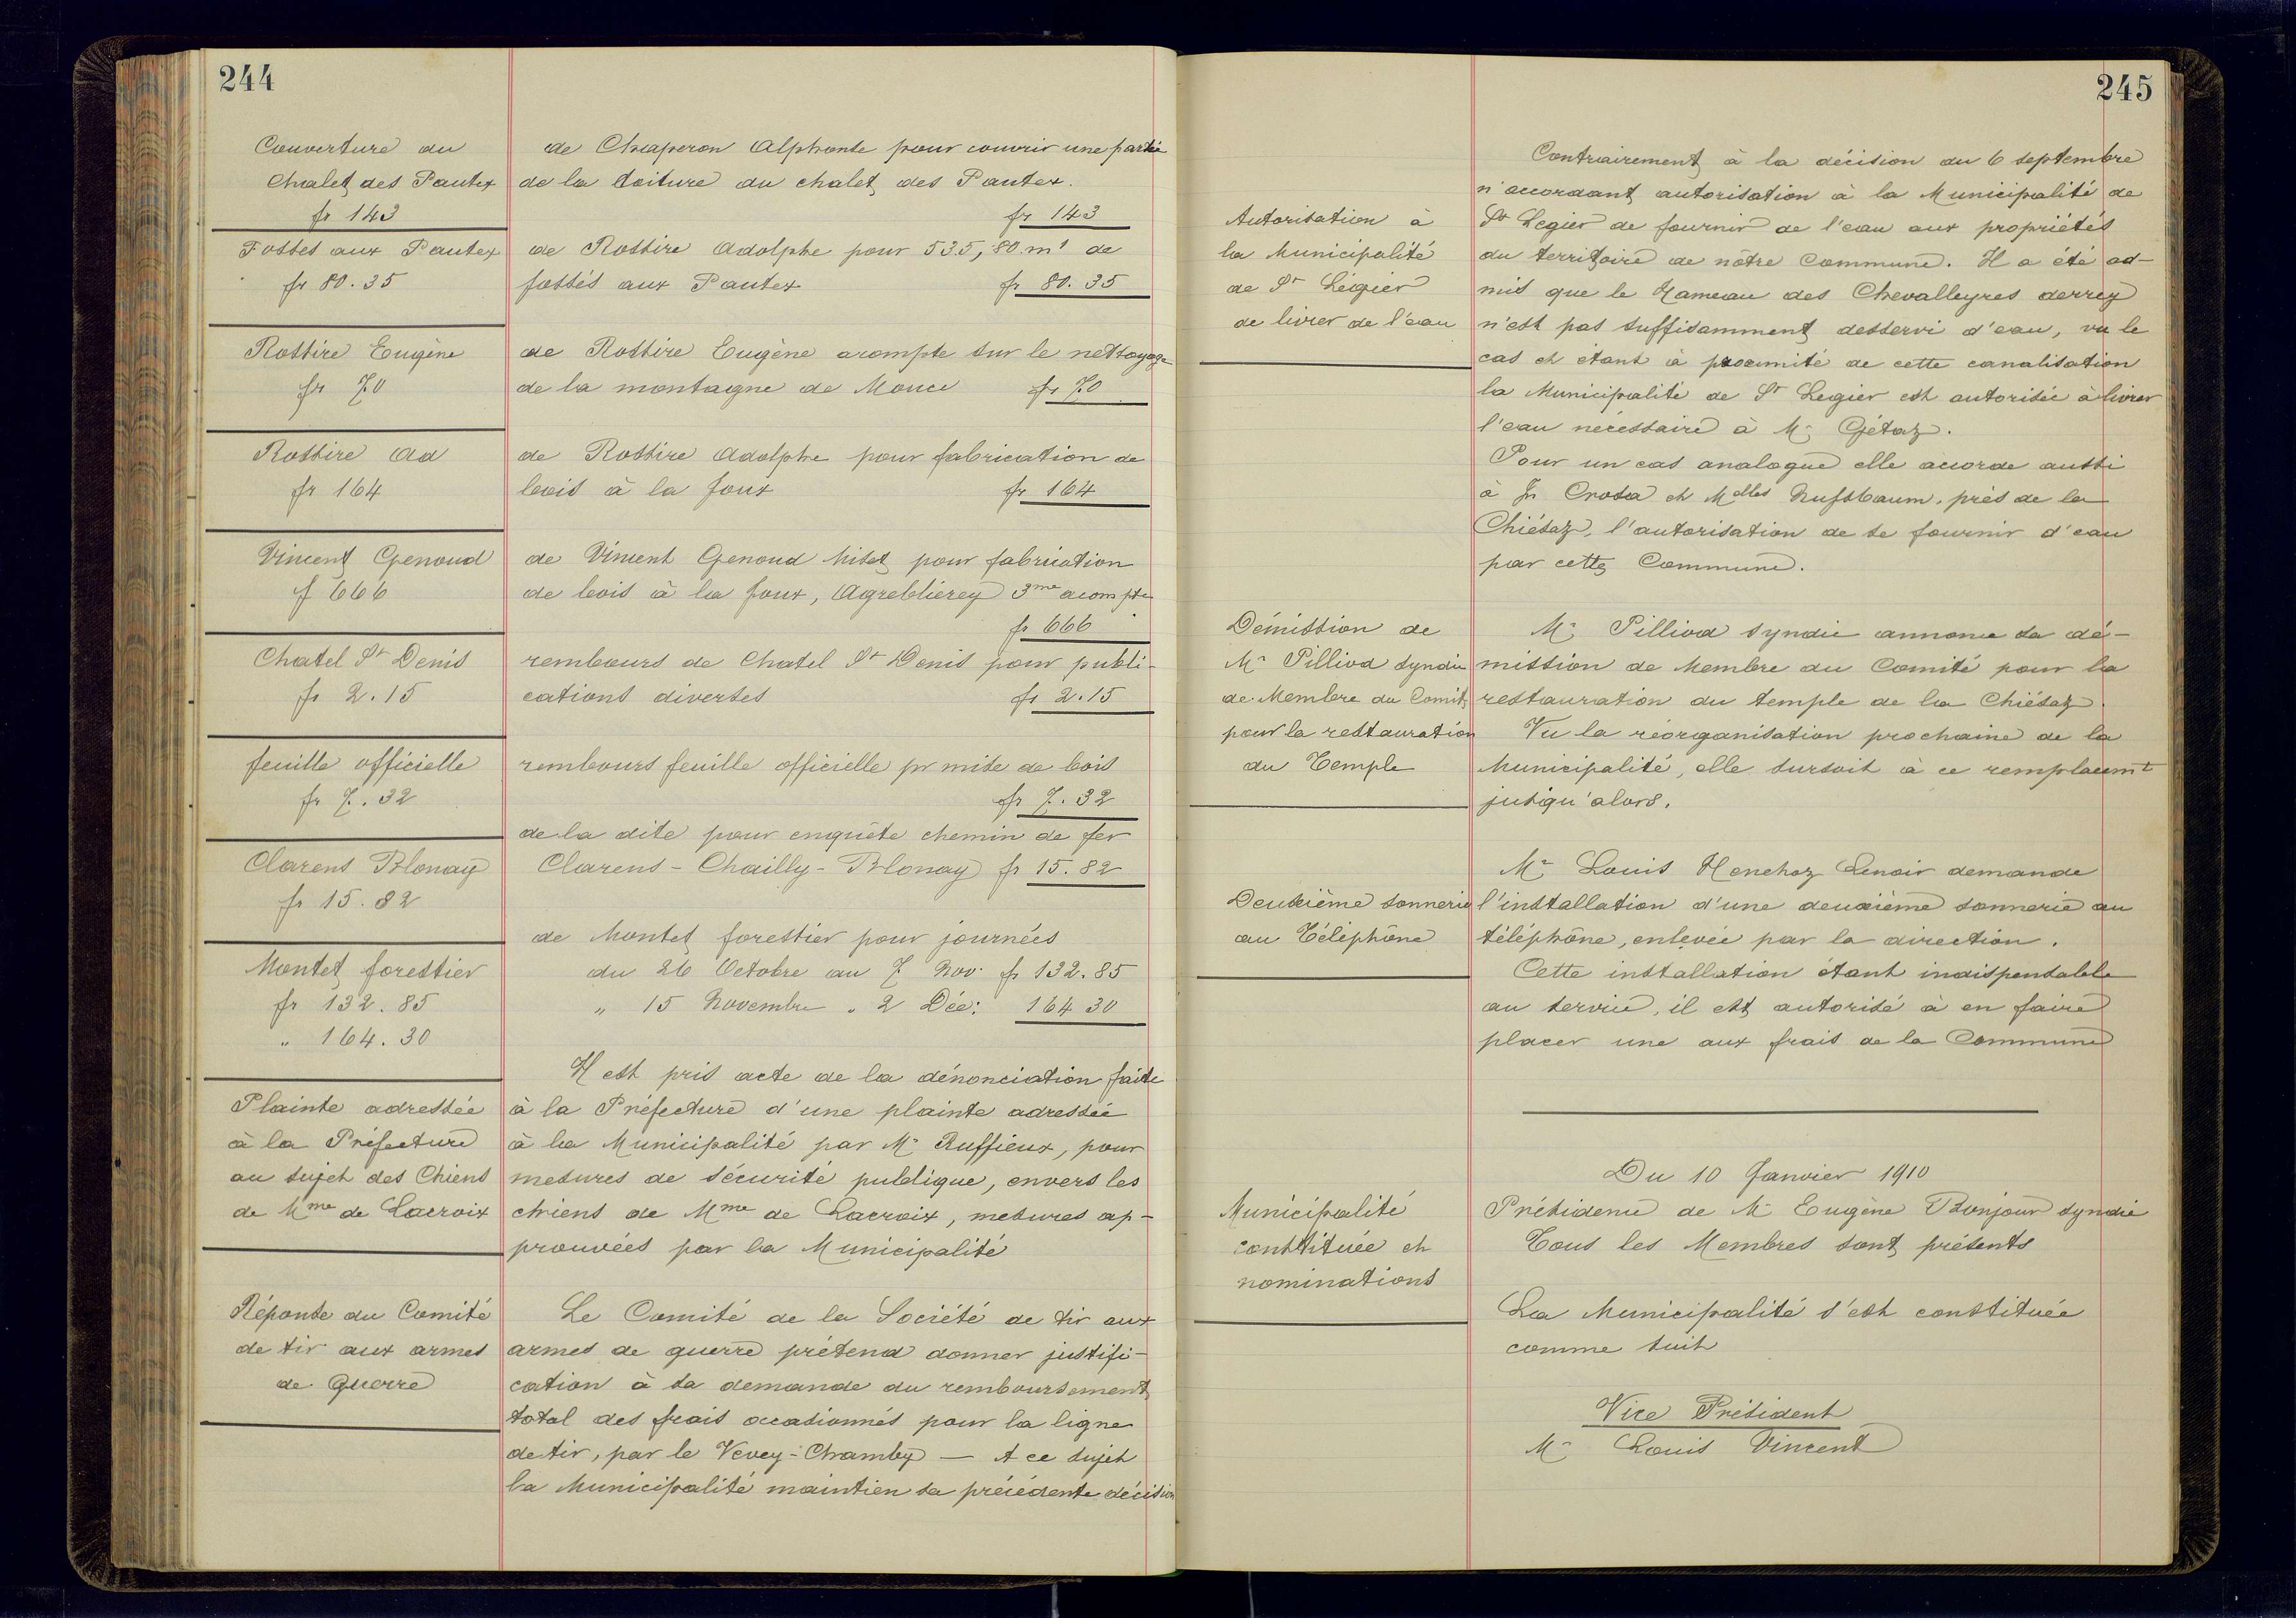 244
Couverture du
Chalet des Pautex
fr 143
de Chaperon Alphonse pour couvrir une partie
de la toiture du chalet des Pautex.
fr 143
Fossés aux Pautex
fr 80.35
de Rossire Adolphe pour 535,80 m¹ de
fossés aux Pautex fr 80.35
Rossire Eugène
fr 70
de Rossire Eugène acompte sur le nettoyage
de la montagne de Mouce fr 70
Rossire Ad
fr 164
de Rossire Adolphe pour fabrication de
bois à la Joux fr 164
Vincent Genoud
f 666
de Vincent Genoud pour fabrication
de bois à la Joux, Agreblierey 3me acompte
fr 666
Chatel St Denis
fr 2.15
rembours de Chatel St Denis pour publi-
cations diverses fr 2.15
feuille officielle
fr 7.32
rembours feuille officielle pr mise de bois
fr 7.32
de la dite pour enquête chemin de fer
Clarens - Chailly - Blonay fr 15.82
Clarens Blonay
fr 15.82
Montet forestier
fr 132.85
" 164.30
de Montet forestier pour journées
du 26 Octobre au 7 Nov. fr 132.85
" 15 Novembre " 2 Déc: 164 30
Plainte adressée
à la Préfecture
au sujet des Chiens
de Mme de Lacroix
Il est pris acte de la dénonciation faite
à la Préfecture d'une plainte adressée
à la Municipalité par Mr Ruffieux, pour
mesures de sécurité publique, envers les
chiens de Mme de Lacroix, mesures ap-
prouvées par la Municipalité
Réponse du Comité
de tir aux armes
de Guerre
Le Comité de la Société de tir aux
armes de guerre prétend donner justifi-
cation à sa demande du remboursement
total des frais occasionnés pour la ligne
de tir, par le Vevey-Chamby — A ce sujet
la Municipalité maintien sa précédente décision
245
Autorisation à
la Municipalité
de St Légier
de livrer de l'eau
Contrairement à la décision du 6 septembre
n'accordant autorisation à la Municipalité de
St Legier de fournir de l'eau aux propriétés
du territoire de nôtre Commune. Il a été ad-
mis que le Hameau des Chevalleyres derrey
n'est pas suffisamment desservi d'eau, vu le
cas et étant à proximité de cette canalisation
la Municipalité de St Legier est autorisée à livrer
l'eau nécessaire à Mr Gétaz.
Pour un cas analogue elle accorde aussi
à Jn Crosa et Melles Nussbaum, près de la
Chiésaz, l'autorisation de se fournir d'eau
par cette Commune.
Démission de
Mr Pilliod syndic
de Membre du Comité
pour la restauration
du Temple
Mr Pilliod syndic annonce sa dé-
mission de Membre du Comité pour la
restauration du temple de la Chiésaz
Vu la réorganisation prochaine de la
Municipalité, elle sursoit à ce remplacemt
jusqu'alors.
Deuxième sonnerie
au Téléphône
Mr Louis Henchoz Lenoir demande
l'installation d'une deuxième sonnerie au
téléphône, enlevée par la direction.
Cette installation étant indispensable
au service, il est autorisé à en faire
placer une aux frais de la Commune
Du 10 Janvier 1910
Présidence de Mr Eugène Bonjour syndic
Tous les Membres sont présents
Municipalité
constituée et
nominations
La Municipalité s'est constituée
comme suit
Vice Président
Mr Louis Vincent